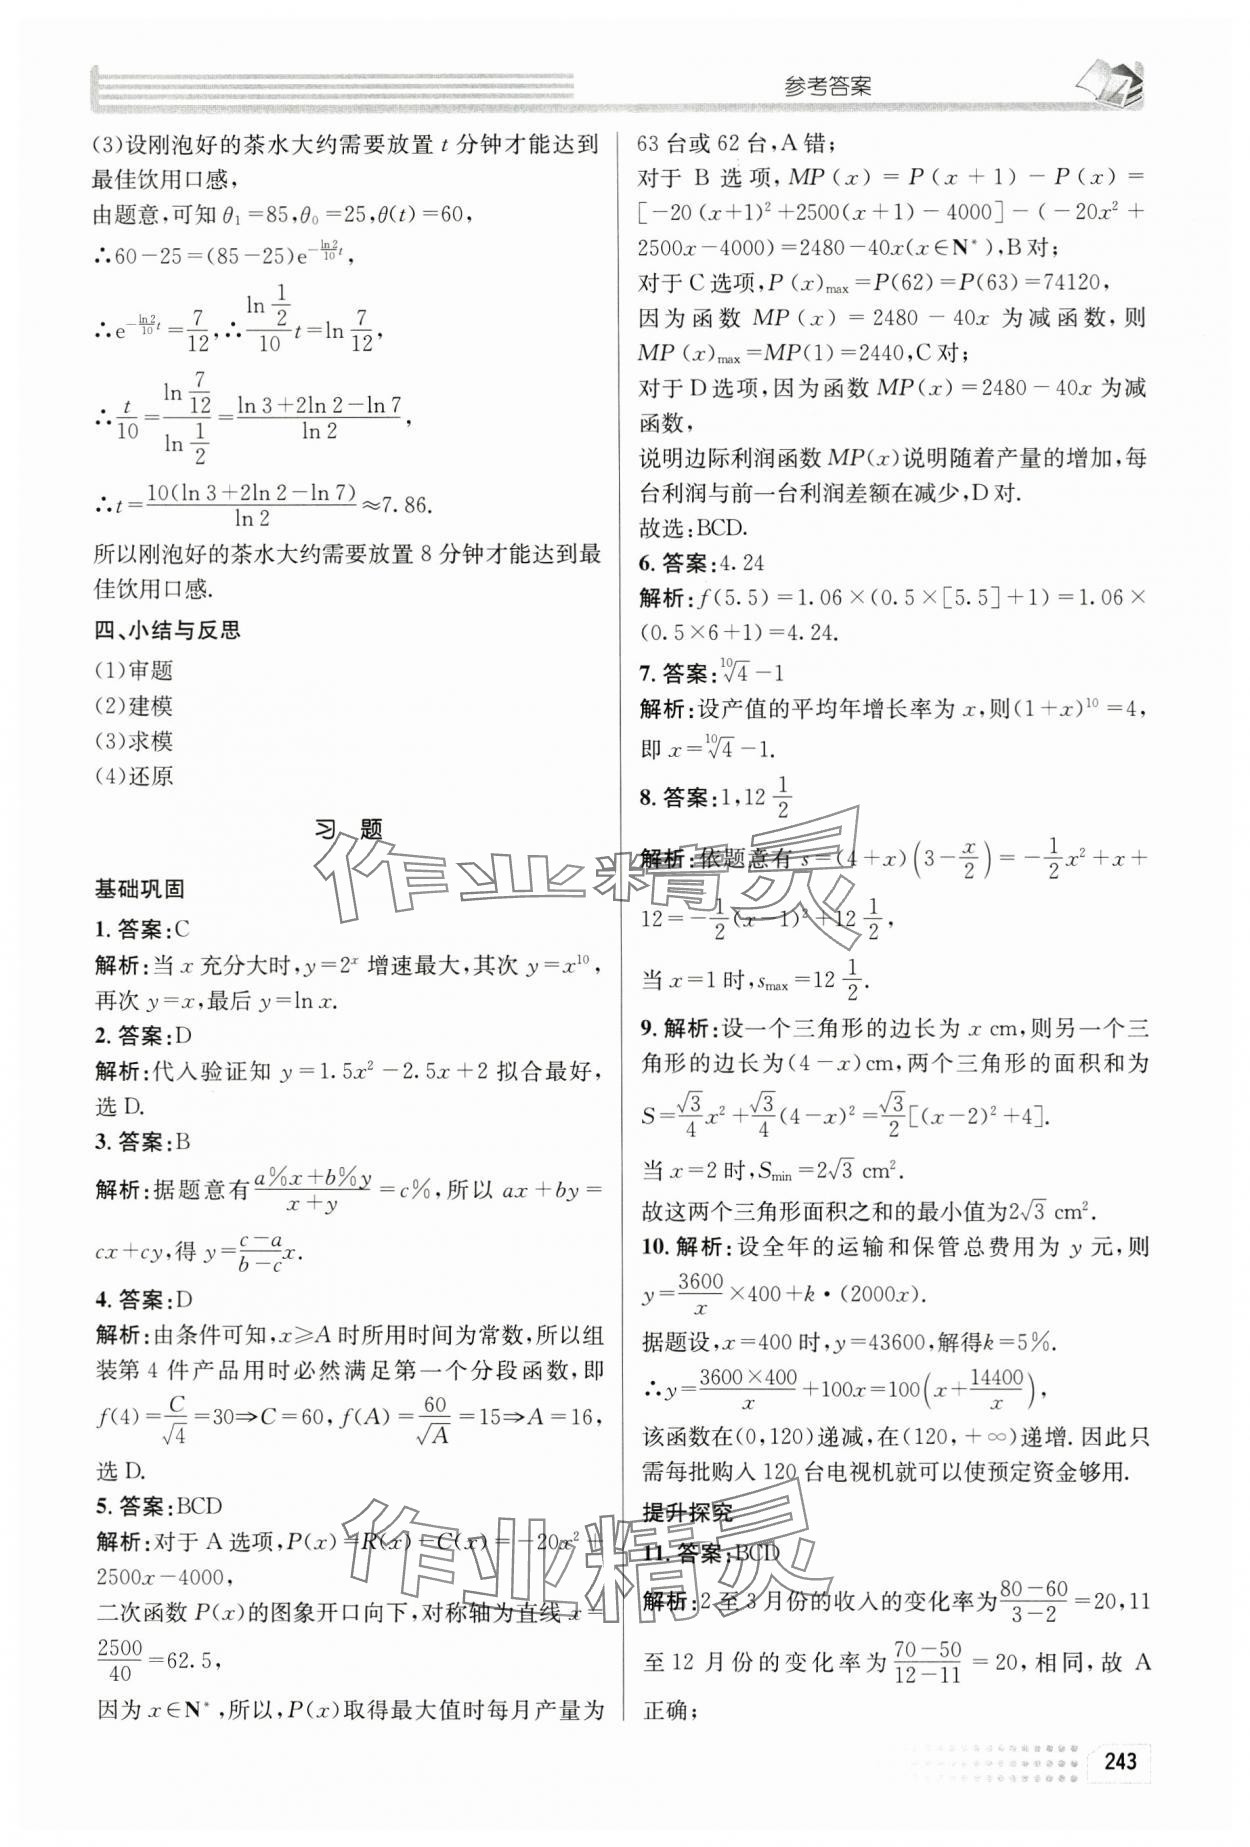 参考答案
(3)设刚泡好的茶水大约需要放置 t 分钟才能达到
最佳饮用口感,
由题意,可知 θ₁=85,θ₀=25,θ(t)=60,
∴60-25=(85-25)e^{-\frac{ln2}{10}t},
∴e^{-\frac{ln2}{10}t}=\frac{7}{12},∴\frac{ln\frac{1}{2}}{10}t=ln\frac{7}{12},
∴\frac{t}{10}=\frac{ln\frac{7}{12}}{ln\frac{1}{2}}=\frac{ln 3+2ln 2-ln 7}{ln 2},
∴t=\frac{10(ln 3+2ln 2-ln 7)}{ln 2}≈7.86.
所以刚泡好的茶水大约需要放置 8 分钟才能达到最
佳饮用口感.
四、小结与反思
(1)审题
(2)建模
(3)求模
(4)还原
习 题
基础巩固
1. 答案:C
解析:当 x 充分大时,y=2^x 增速最大,其次 y=x^{10},
再次 y=x,最后 y=ln x.
2. 答案:D
解析:代入验证知 y=1.5x²-2.5x+2 拟合最好,
选 D.
3. 答案:B
解析:据题意有\frac{a%x+b%y}{x+y}=c%,所以 ax+by=
cx+cy,得 y=\frac{c-a}{b-c}x.
4. 答案:D
解析:由条件可知,x⩾A 时所用时间为常数,所以组
装第 4 件产品用时必然满足第一个分段函数,即
f(4)=\frac{C}{\sqrt{4}}=30⇒C=60,f(A)=\frac{60}{\sqrt{A}}=15⇒A=16,
选 D.
5. 答案:BCD
解析:对于 A 选项,P(x)=R(x)-C(x)=-20x²+
2500x-4000,
二次函数 P(x)的图象开口向下,对称轴为直线 x=
\frac{2500}{40}=62.5,
因为 x∈N*,所以,P(x)取得最大值时每月产量为
63 台或 62 台,A 错;
对于 B 选项,MP(x)=P(x+1)-P(x)=
[-20(x+1)²+2500(x+1)-4000]-(-20x²+
2500x-4000)=2480-40x(x∈N*),B 对;
对于 C 选项,P(x)_{max}=P(62)=P(63)=74120,
因为函数 MP(x)=2480-40x 为减函数,则
MP(x)_{max}=MP(1)=2440,C 对;
对于 D 选项,因为函数 MP(x)=2480-40x 为减
函数,
说明边际利润函数 MP(x)说明随着产量的增加,每
台利润与前一台利润差额在减少,D 对.
故选:BCD.
6. 答案:4.24
解析:f(5.5)=1.06×(0.5×[5.5]+1)=1.06×
(0.5×6+1)=4.24.
7. 答案:\sqrt[10]{4}-1
解析:设产值的平均年增长率为 x,则(1+x)^{10}=4,
即 x=\sqrt[10]{4}-1.
8. 答案:1,12\frac{1}{2}
解析:依题意有 s=(4+x)(3-\frac{x}{2})=-\frac{1}{2}x²+x+
12=-\frac{1}{2}(x-1)²+12\frac{1}{2},
当 x=1 时,s_{max}=12\frac{1}{2}.
9. 解析:设一个三角形的边长为 x cm,则另一个三
角形的边长为(4-x)cm,两个三角形的面积和为
S=\frac{\sqrt{3}}{4}x²+\frac{\sqrt{3}}{4}(4-x)²=\frac{\sqrt{3}}{2}[(x-2)²+4].
当 x=2 时,S_{min}=2\sqrt{3} cm².
故这两个三角形面积之和的最小值为2\sqrt{3} cm².
10. 解析:设全年的运输和保管总费用为 y 元,则
y=\frac{3600}{x}×400+k·(2000x).
据题设,x=400 时,y=43600,解得k=5%.
∴y=\frac{3600×400}{x}+100x=100(x+\frac{14400}{x}),
该函数在(0,120)递减,在(120,+∞)递增.因此只
需每批购入 120 台电视机就可以使预定资金够用.
提升探究
11. 答案:BCD
解析:2 至 3 月份的收入的变化率为\frac{80-60}{3-2}=20,11
至 12 月份的变化率为\frac{70-50}{12-11}=20,相同,故 A
正确;
作业精灵
作业精灵
243